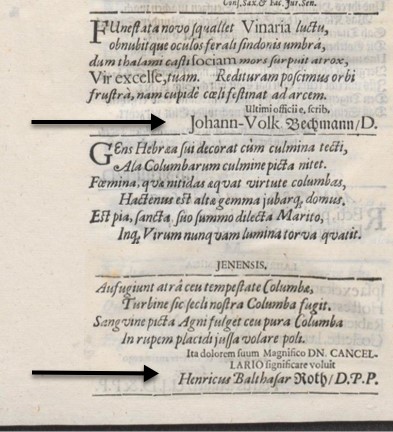 Cons. Sax. & Fac. Jur. Sen.
FUnestata novo squallet Vinaria luctu,
obnubitque oculos ferali sindonis umbrâ,
dum thalami casti sociam mors surpuit atrox,
Vir excelse, tuam. Redituram poscimus orbi
frustrà, nam cupidè cœli festinat ad arcem.
Ultimi officii e, scrib.
Johann-Volk. Bechmann/D.
GEns Hebræa sui decorat cùm culmina tecti,
Ala Columbarum culmine picta nitet.
Fœmina, qvæ nitidas æqvat virtute columbas,
Hactenus est altæ gemma jubarq; domus.
Est pia, sancta, suo summo dilecta Marito,
Inq; Virum nunqvam lumina torva qvatit.
JENENSIS.
Aufugiunt atrâ ceu tempestate Columbæ,
Turbine sic secli nostra Columba fugit.
Sangvine picta Agni fulget ceu pura Columba
In rupem placidi jussa volare poli.
Ita dolorem suum Magnifico DN. CANCEL-
LARIO significare voluit
Henricus Balthasar Roth/D.P.P.